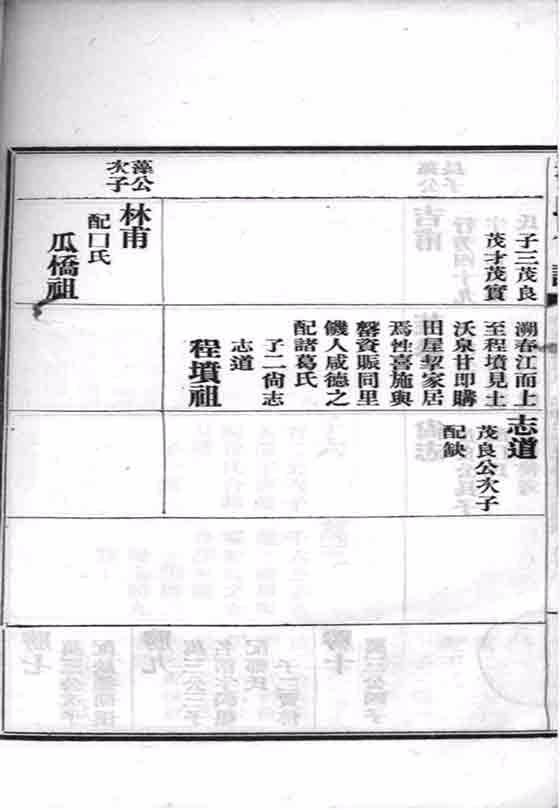 子三茂良
茂才茂實
藻公
次子
林甫
配口氏
瓜橋祖
溯春江而上
至程墳見土
沃泉甘即購
田屋挈家居
焉性喜施與
罄資賑同里
饑人咸德之
配諸葛氏
子二尙志
志道
程墳祖
志道
茂良公次子
配缺